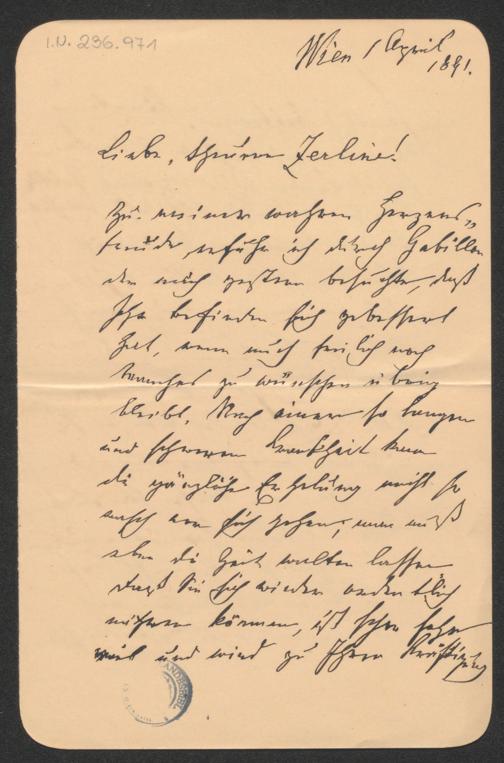 I.N. 236.971
Wien 1 April
1891.
Liebe, theuere Zerline!
Zu meiner wahren Herzens„
freude erfuhr ich durch Gabillon
der mich gestern besuchte, daß
Ihr Befinden sich gebessert
hat, wenn auch freilich noch
Manches zu wünschen übrig
bleibt. Nach einer so langen
und schweren Krankheit kann
die gänzliche Erholung nicht so
rasch von sich gehen; man muß
eben die Zeit walten lassen
Daß Sie sich wieder ordentlich
nähren können, ist schon sehr
viel und wird zu Ihrer Kräftigung